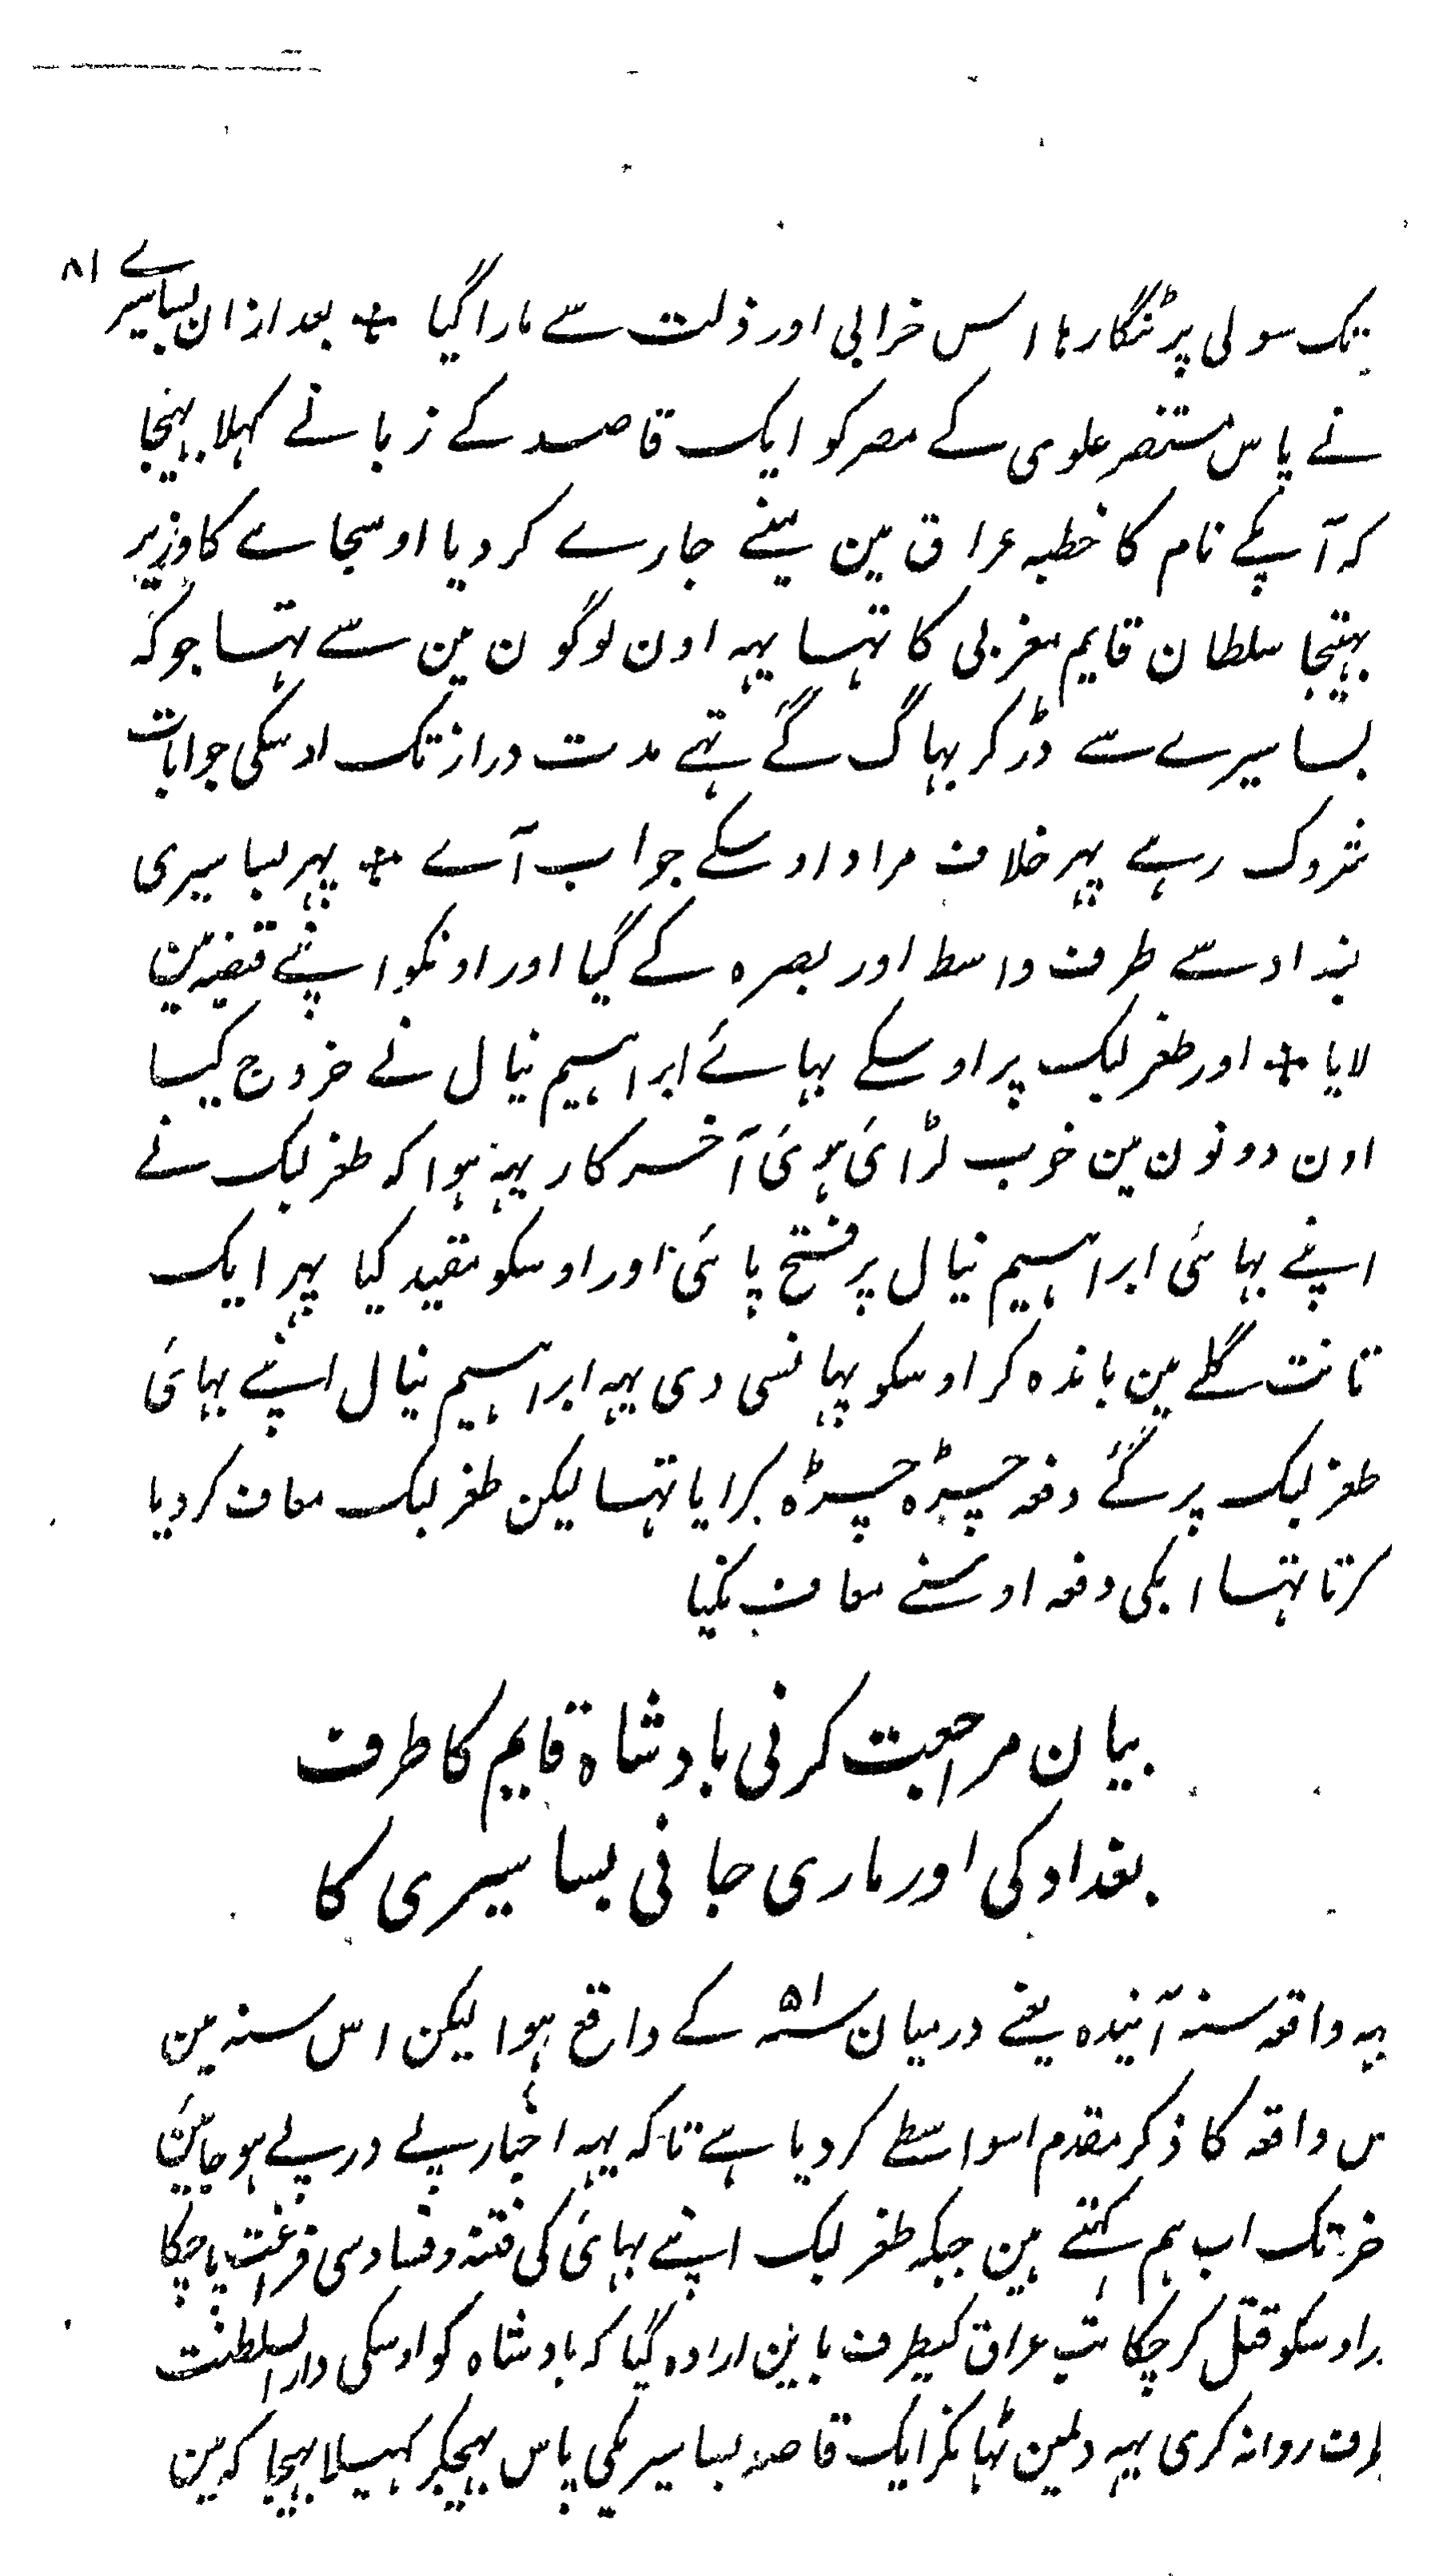 ۸۱
تک سولی پر ٹنگا رہا اس خرابی اور ذلت سے مارا گیا + بعد ازان بساسیرے
نے پاس مستنصر علوی کے مصر کو ایک قاصد کے زبانے کہلا بہیجا
کہ آپکے نام کا خطبہ عراق مین مینے جارے کر دیا اوسجاے کا وزیر
بہتیجا سلطان قایم مغربی کا تہا یہہ اون لوگون مین سے تہا جو کہ
بساسیرے سے ڈر کر بہاگ گئے تہے مدت دراز تک اوسکی جوابات
متروک رہے پہر خلاف مراد اوسکے جواب آے + پہر بساسیری
بغداد سے طرف واسط اور بصرہ کے گیا اور اونکو اپنے قبضہ مین
لایا + اور طغرلبک پر اوسکے بہائے ابراہیم نیال نے خروج کیا
اون دونون مین خوب لڑائی ہوئی آخر کار یہہ ہوا کہ طغرلبک نے
اپنے بہائی ابراہیم نیال پر فتح پائی اور اوسکو مقید کیا پہر ایک
تانت گلے مین باندہ کر اوسکو پہانسی دی یہہ ابراہیم نیال اپنے بہائی
طغرلبک پر کئے دفعہ چڑہ چڑہ کر آیا تہا لیکن طغرلبک معاف کر دیا
کرتا تہا ابکی دفعہ اوسنے معاف نکیا
بیان مراجعت کرنی بادشاہ قایم کا طرف
بغداد کی اور ماری جانی بساسیری کا
یہہ واقعہ سنہ آئندہ یعنے درمیان سنہ ۵۱ کے واقع ہوا لیکن اس سنہ مین
س واقعہ کا ذکر مقدم اسواسطے کر دیا ہے تاکہ یہہ اخبار پے در پے ہو جائین
خر تک اب ہم کہتے ہین جبکہ طغرلبک اپنے بہائی کی فتنہ و فساد سی فراغت پا چکا
ر اوسکو قتل کر چکا تب عراق کیطرف باین ارادہ گیا کہ بادشاہ کو اوسکی دار السلطنت
طرف روانہ کری یہہ دلمین ٹہانکر ایک قاصد بساسیریکی پاس بہیجکر کہلا بہیجا کہ مین